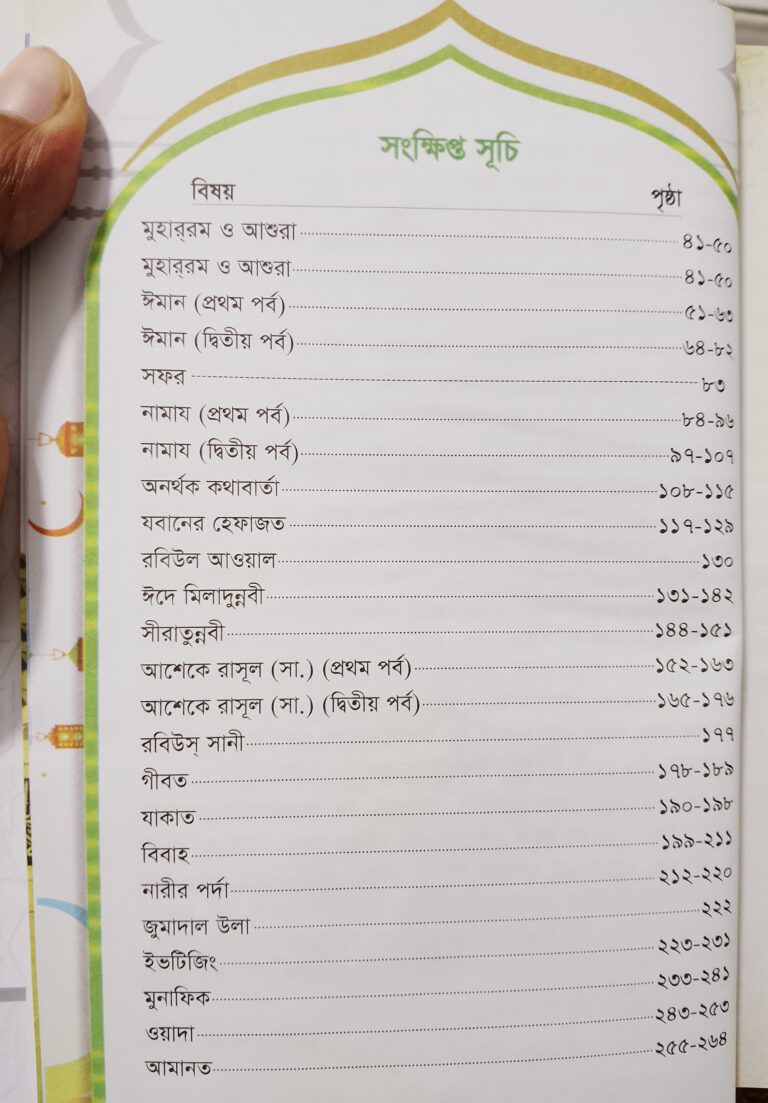 সংক্ষিপ্ত সূচি
বিষয় পৃষ্ঠা
মুহার্‌রম ও আশুরা ৪১-৫০
মুহার্‌রম ও আশুরা ৪১-৫০
ঈমান (প্রথম পর্ব) ৫১-৬৩
ঈমান (দ্বিতীয় পর্ব) ৬৪-৮২
সফর ৮৩
নামায (প্রথম পর্ব) ৮৪-৯৬
নামায (দ্বিতীয় পর্ব) ৯৭-১০৭
অনর্থক কথাবার্তা ১০৮-১১৫
যবানের হেফাজত ১১৭-১২৯
রবিউল আওয়াল ১৩০
ঈদে মিলাদুন্নবী ১৩১-১৪২
সীরাতুন্নবী ১৪৪-১৫১
আশেকে রাসূল (সা.) (প্রথম পর্ব) ১৫২-১৬৩
আশেকে রাসূল (সা.) (দ্বিতীয় পর্ব) ১৬৫-১৭৬
রবিউস্ সানী ১৭৭
গীবত ১৭৮-১৮৯
যাকাত ১৯০-১৯৮
বিবাহ ১৯৯-২১১
নারীর পর্দা ২১২-২২০
জুমাদাল উলা ২২২
ইভটিজিং ২২৩-২৩১
মুনাফিক ২৩৩-২৪১
ওয়াদা ২৪৩-২৫৩
আমানত ২৫৫-২৬৪